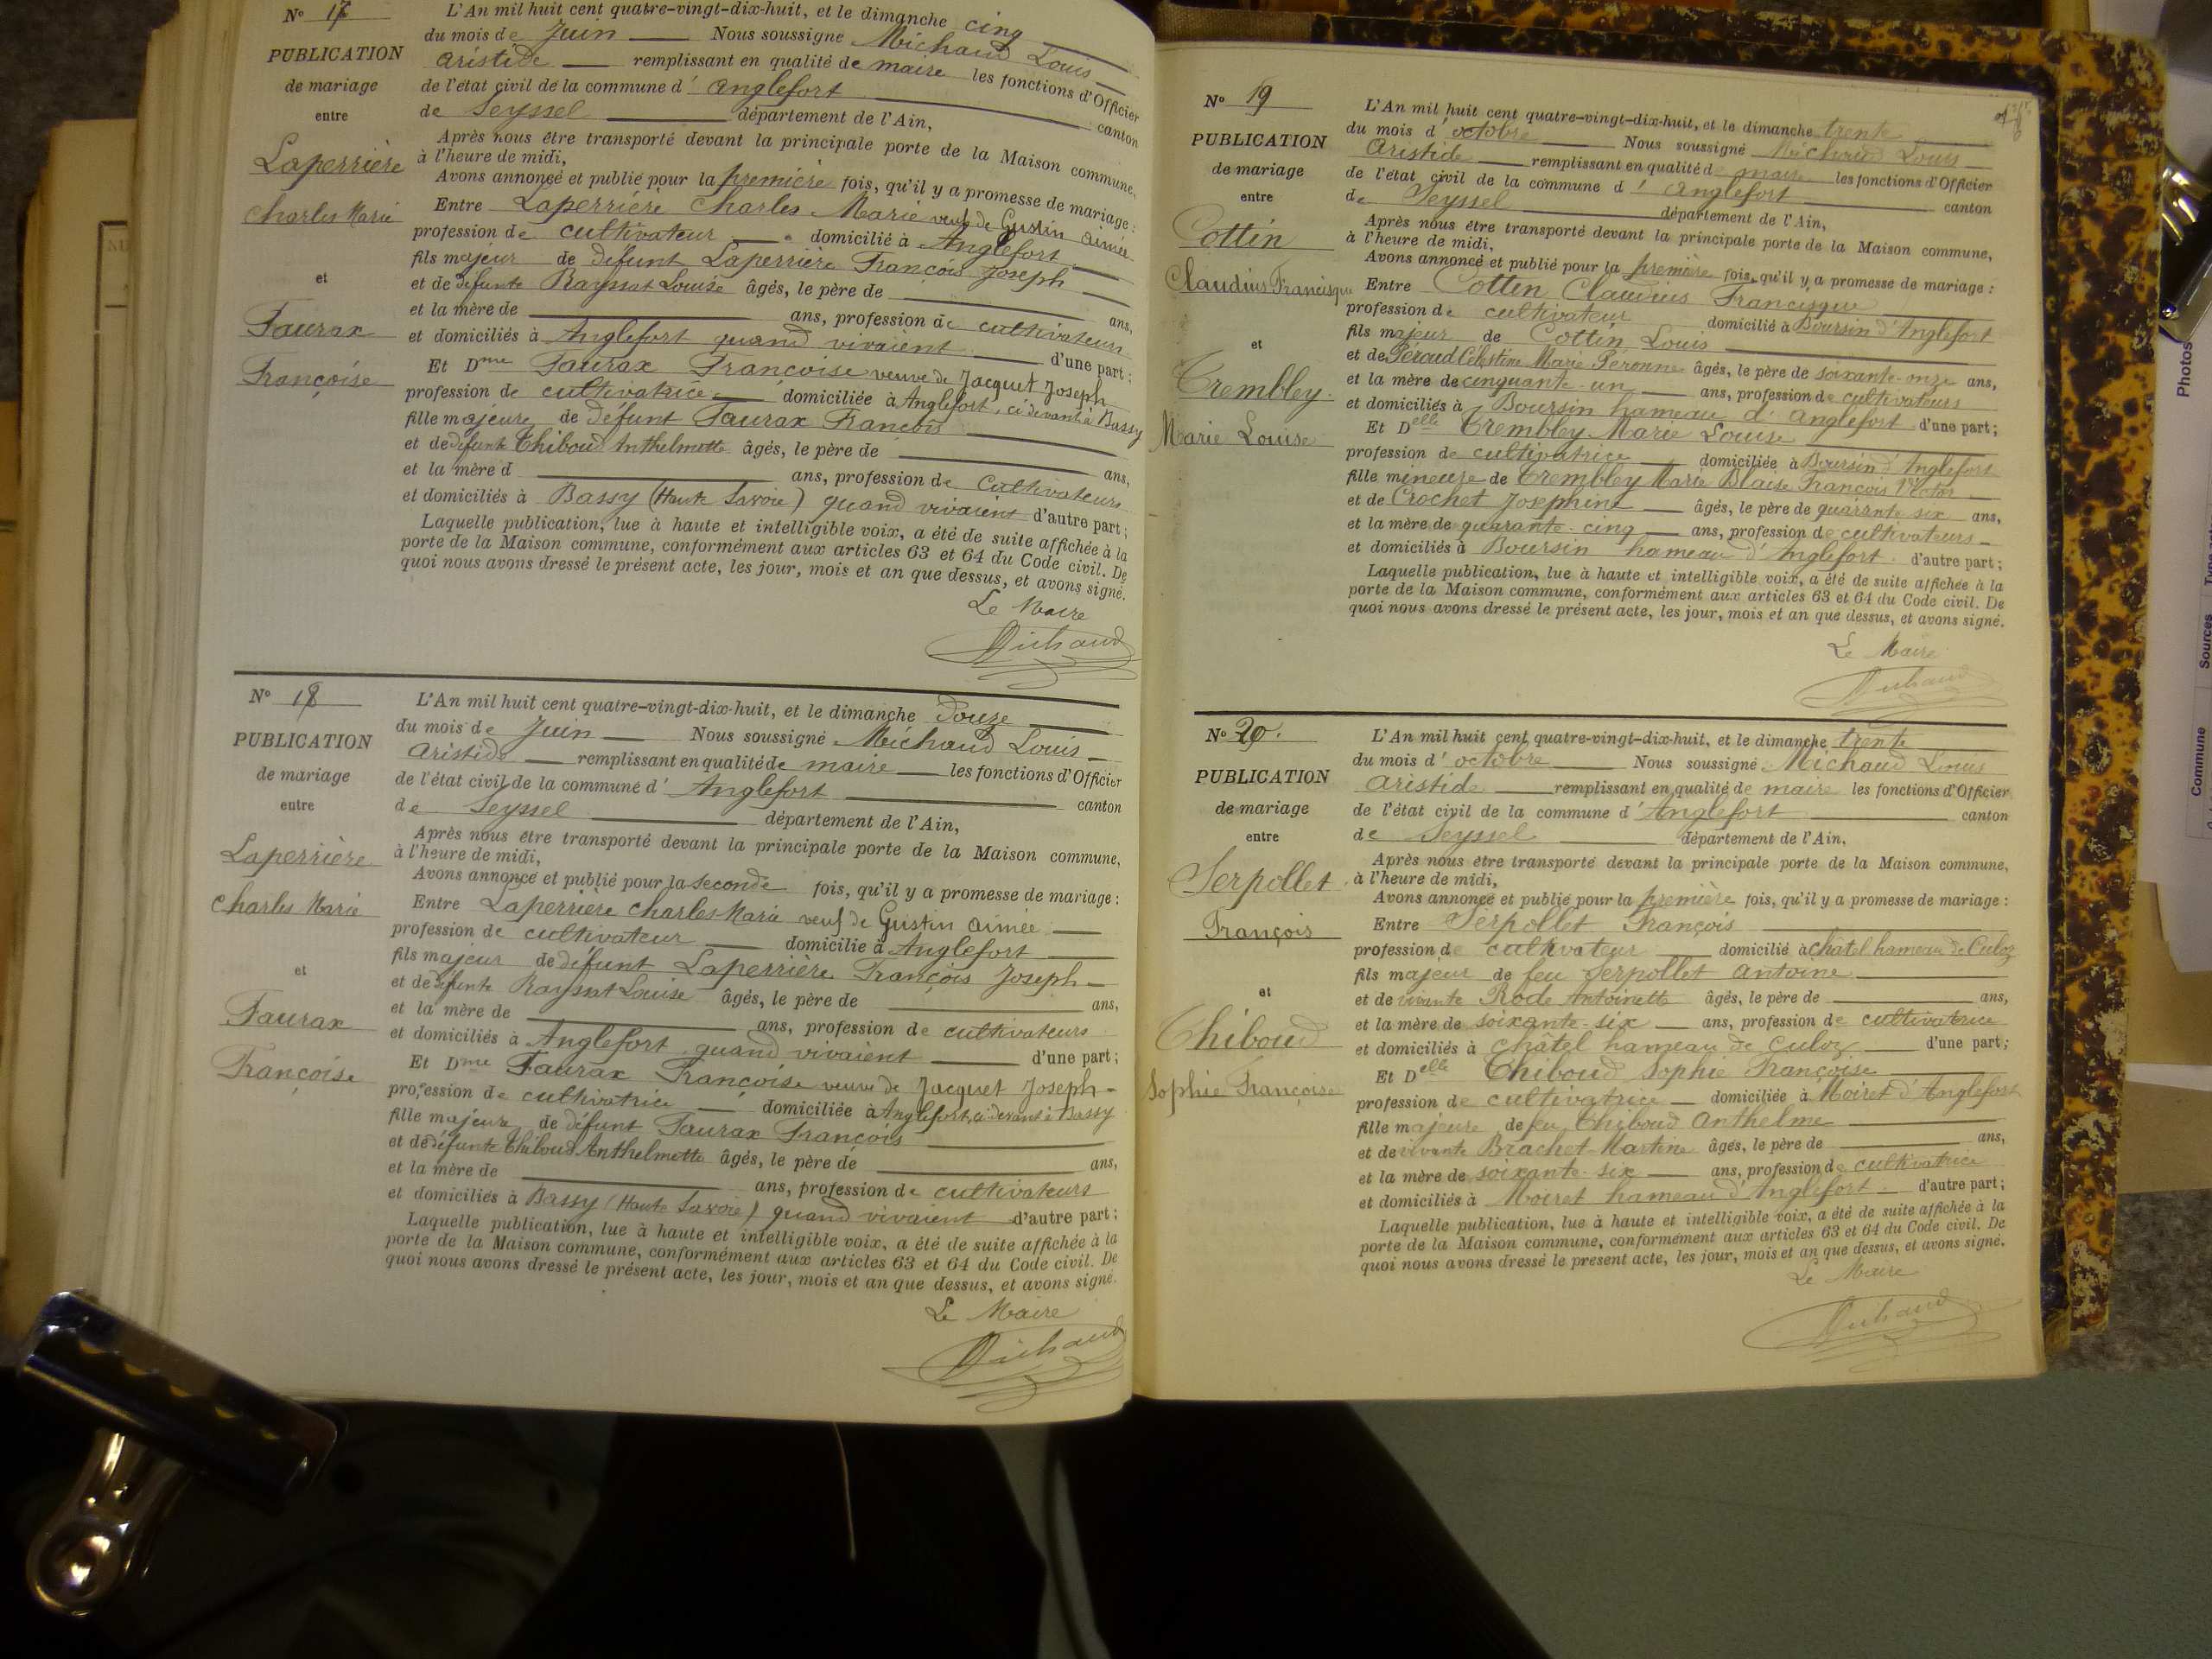 N° 17
PUBLICATION
de mariage
entre
Laperrière
Charles Marie
et
Faurax
Françoise
L'An mil huit cent quatre-vingt-dix-huit, et le dimanche cinq
du mois de Juin Nous soussigné Michaud Louis
Aristide remplissant en qualité de maire les fonctions d'Officier
de l'état civil de la commune d' Anglefort canton
de Seyssel département de l'Ain,
Après nous être transporté devant la principale porte de la Maison commune,
à l'heure de midi,
Avons annoncé et publié pour la première fois, qu'il y a promesse de mariage :
Entre Laperrière Charles Marie veuf de Gustin Aimée
profession de cultivateur domicilié à Anglefort
fils majeur de défunt Laperrière François Joseph
et de défunte Rayssat Louise âgés, le père de ans,
et la mère de ans, profession de cultivateurs
et domiciliés à Anglefort quand vivaient d'une part ;
Et Dme Faurax Françoise veuve de Jacquet Joseph
profession de cultivatrice domiciliée à Anglefort, ci devant à Bassy
fille majeure de défunt Faurax François
et de défunte Thiboud Anthelmette âgés, le père de ans,
et la mère d ans, profession de cultivateurs
et domiciliés à Bassy (Haute Savoie) quand vivaient d'autre part ;
Laquelle publication, lue à haute et intelligible voix, a été de suite affichée à la
porte de la Maison commune, conformément aux articles 63 et 64 du Code civil. De
quoi nous avons dressé le présent acte, les jour, mois et an que dessus, et avons signé.
Le Maire
Michaud
N° 18
PUBLICATION
de mariage
entre
Laperrière
Charles Marie
et
Faurax
Françoise
L'An mil huit cent quatre-vingt-dix-huit, et le dimanche Douze
du mois de Juin Nous soussigné Michaud Louis
Aristide remplissant en qualité de maire les fonctions d'Officier
de l'état civil de la commune d' Anglefort canton
de Seyssel département de l'Ain,
Après nous être transporté devant la principale porte de la Maison commune,
à l'heure de midi,
Avons annoncé et publié pour la seconde fois, qu'il y a promesse de mariage :
Entre Laperrière Charles Marie veuf de Gustin Aimée
profession de cultivateur domicilié à Anglefort
fils majeur de défunt Laperrière François Joseph
et de défunte Rayssat Louise âgés, le père de ans,
et la mère de ans, profession de cultivateurs
et domiciliés à Anglefort quand vivaient d'une part ;
Et Dme Faurax Françoise veuve de Jacquet Joseph
profession de cultivatrice domiciliée à Anglefort, ci devant à Bassy
fille majeure de défunt Faurax François
et de défunte Thiboud Anthelmette âgés, le père de ans,
et la mère de ans, profession de cultivateurs
et domiciliés à Bassy (Haute Savoie) quand vivaient d'autre part ;
Laquelle publication, lue à haute et intelligible voix, a été de suite affichée à la
porte de la Maison commune, conformément aux articles 63 et 64 du Code civil. De
quoi nous avons dressé le présent acte, les jour, mois et an que dessus, et avons signé.
Le Maire
Michaud
N° 19
PUBLICATION
de mariage
entre
Cottin
Claudius Francisque
et
Trembley
Marie Louise
L'An mil huit cent quatre-vingt-dix-huit, et le dimanche trente
du mois d' octobre Nous soussigné Michaud Louis
Aristide remplissant en qualité d maire les fonctions d'Officier
de l'état civil de la commune d' Anglefort canton
de Seyssel département de l'Ain,
Après nous être transporté devant la principale porte de la Maison commune,
à l'heure de midi,
Avons annoncé et publié pour la première fois, qu'il y a promesse de mariage :
Entre Cottin Claudius Francisque
profession de cultivateur domicilié à Boursin d'Anglefort
fils majeur de Cottin Louis
et de Péraud Célestine Marie Péronne âgés, le père de soixante-onze ans,
et la mère de cinquante-un ans, profession de cultivateurs
et domiciliés à Boursin hameau d'Anglefort d'une part ;
Et Delle Trembley Marie Louise
profession de cultivatrice domiciliée à Boursin d'Anglefort
fille mineure de Trembley Marie Blaise François Victor
et de Crochet Josephine âgés, le père de quarante six ans,
et la mère de quarante-cinq ans, profession de cultivateurs
et domiciliés à Boursin hameau d'Anglefort d'autre part ;
Laquelle publication, lue à haute et intelligible voix, a été de suite affichée à la
porte de la Maison commune, conformément aux articles 63 et 64 du Code civil. De
quoi nous avons dressé le présent acte, les jour, mois et an que dessus, et avons signé.
Le Maire
Michaud
N° 20
PUBLICATION
de mariage
entre
Serpollet
François
et
Thiboud
Sophie Françoise
L'An mil huit cent quatre-vingt-dix-huit, et le dimanche trente
du mois d' octobre Nous soussigné Michaud Louis
Aristide remplissant en qualité de maire les fonctions d'Officier
de l'état civil de la commune d' Anglefort canton
de Seyssel département de l'Ain,
Après nous être transporté devant la principale porte de la Maison commune,
à l'heure de midi,
Avons annoncé et publié pour la première fois, qu'il y a promesse de mariage :
Entre Serpollet François
profession de cultivateur domicilié à Châtel hameau de Culoz
fils majeur de feu Serpollet Antoine
et de vivante Rode Antoinette âgés, le père de ans,
et la mère de soixante-six ans, profession de cultivatrice
et domiciliés à Châtel hameau de Culoz d'une part ;
Et Delle Thiboud Sophie Françoise
profession de cultivatrice domiciliée à Moiret d'Anglefort
fille majeure de feu Thiboud Anthelme
et de vivante Brachet Martine âgés, le père de ans,
et la mère de soixante-six ans, profession de cultivatrice
et domiciliés à Moiret hameau d'Anglefort d'autre part ;
Laquelle publication, lue à haute et intelligible voix, a été de suite affichée à la
porte de la Maison commune, conformément aux articles 63 et 64 du Code civil. De
quoi nous avons dressé le présent acte, les jour, mois et an que dessus, et avons signé.
Le Maire
Michaud
Photos
Commune Sources